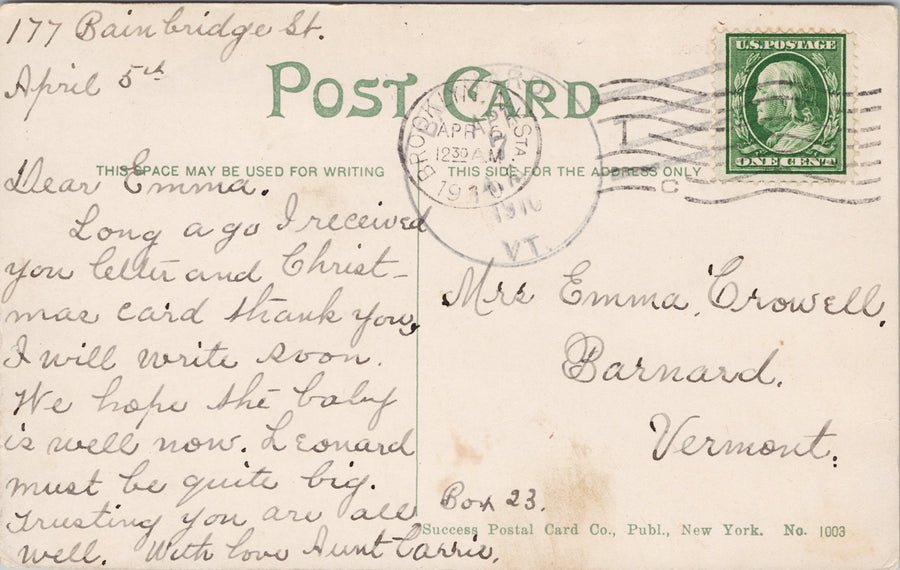 177 Bainbridge St.
April 5th
POST CARD
THIS SPACE MAY BE USED FOR WRITING
THIS SIDE FOR THE ADDRESS ONLY
Dear Emma.
Long ago I received
you letter and Christ-
mas card thank you,
I will write soon.
We hope the baby
is well now. Leonard
must be quite big.
Trusting you are all
well. With love Aunt Carrie,
U.S. POSTAGE
ONE CENT
BROOKLYN, STA.
APR
12 30 AM
1910
1910
VT.
Mrs Emma Crowell,
Barnard.
Vermont.
Box 23.
Success Postal Card Co., Publ., New York. No. 1003